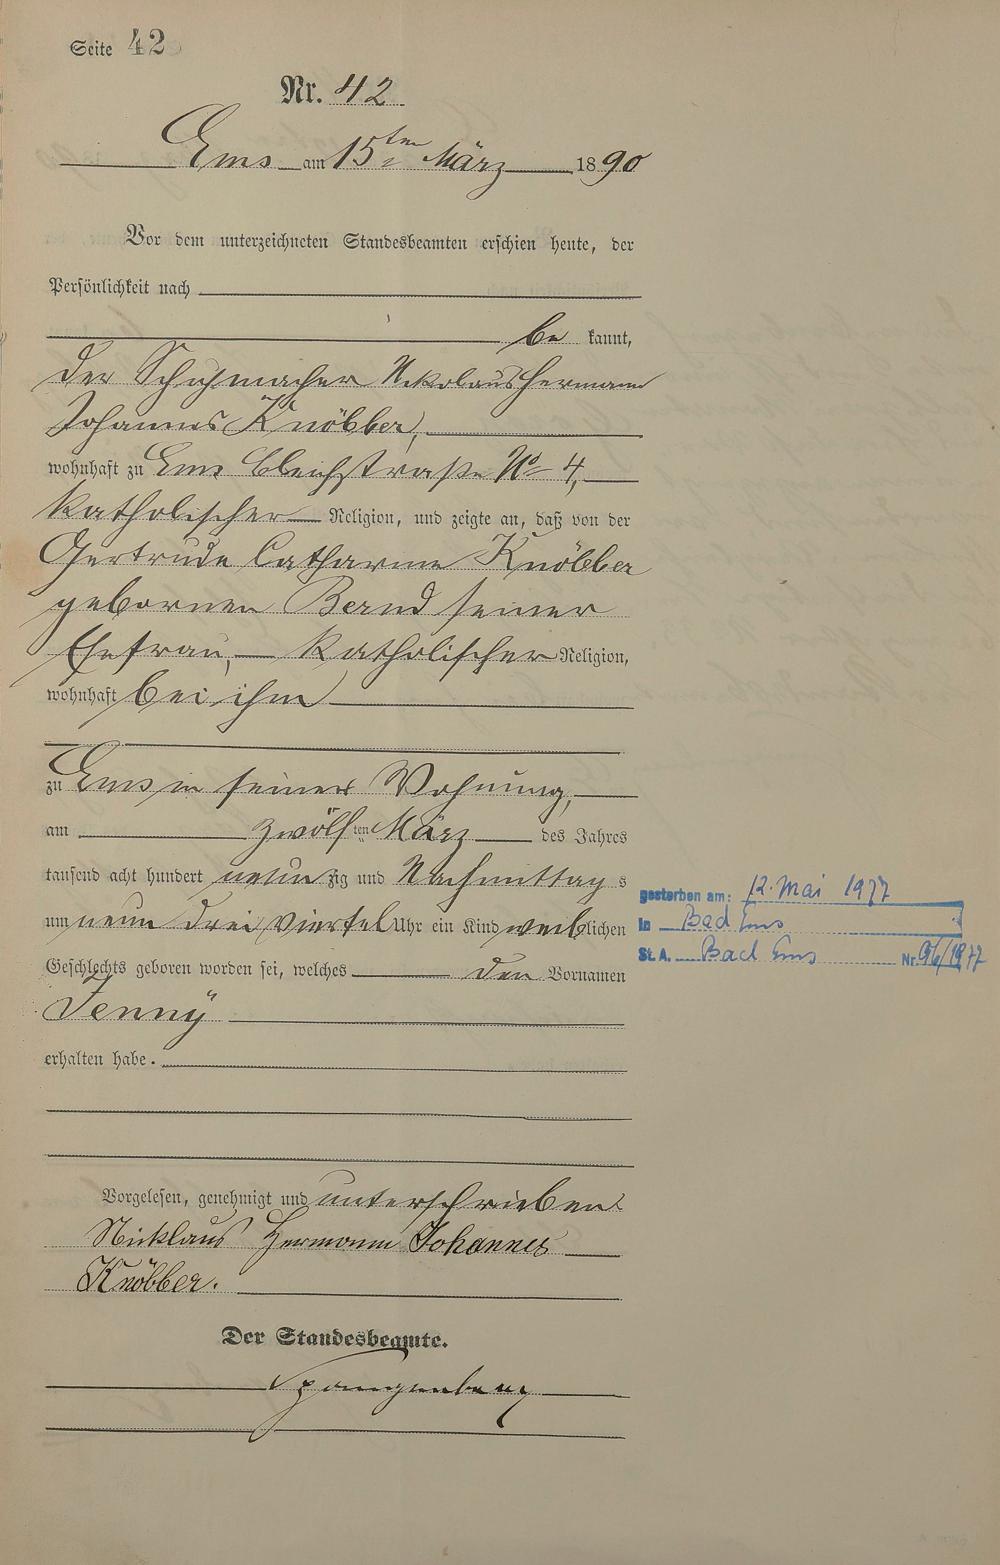 Seite 42
Nr. 42
Ems am 15ten März 1890
Vor dem unterzeichneten Standesbeamten erschien heute, der
Persönlichkeit nach
be kannt,
der Schuhmacher Nikolaus Hermann
Johannes Knöbber,
wohnhaft zu Ems Bleichstraße No 4,
katholischer Religion, und zeigte an, daß von der
Gertrude Catharine Knöbber
gebornen Bernd seiner
Ehefrau, katholischer Religion,
wohnhaft bei ihm
zu Ems in seiner Wohnung,
am zwölften März des Jahres
tausend acht hundert neunzig und Nachmittags
um neun drei viertel Uhr ein Kind weiblichen
Geschlechts geboren worden sei, welches den Vornamen
Jenny
erhalten habe.
Vorgelesen, genehmigt und unterschrieben
Nicklaus Hermann Johannes
Knöbber.
Der Standesbeamte.
Spangenberg
gestorben am: 12. Mai 1977
in Bad Ems
St. A. Bad Ems Nr. 96/1977